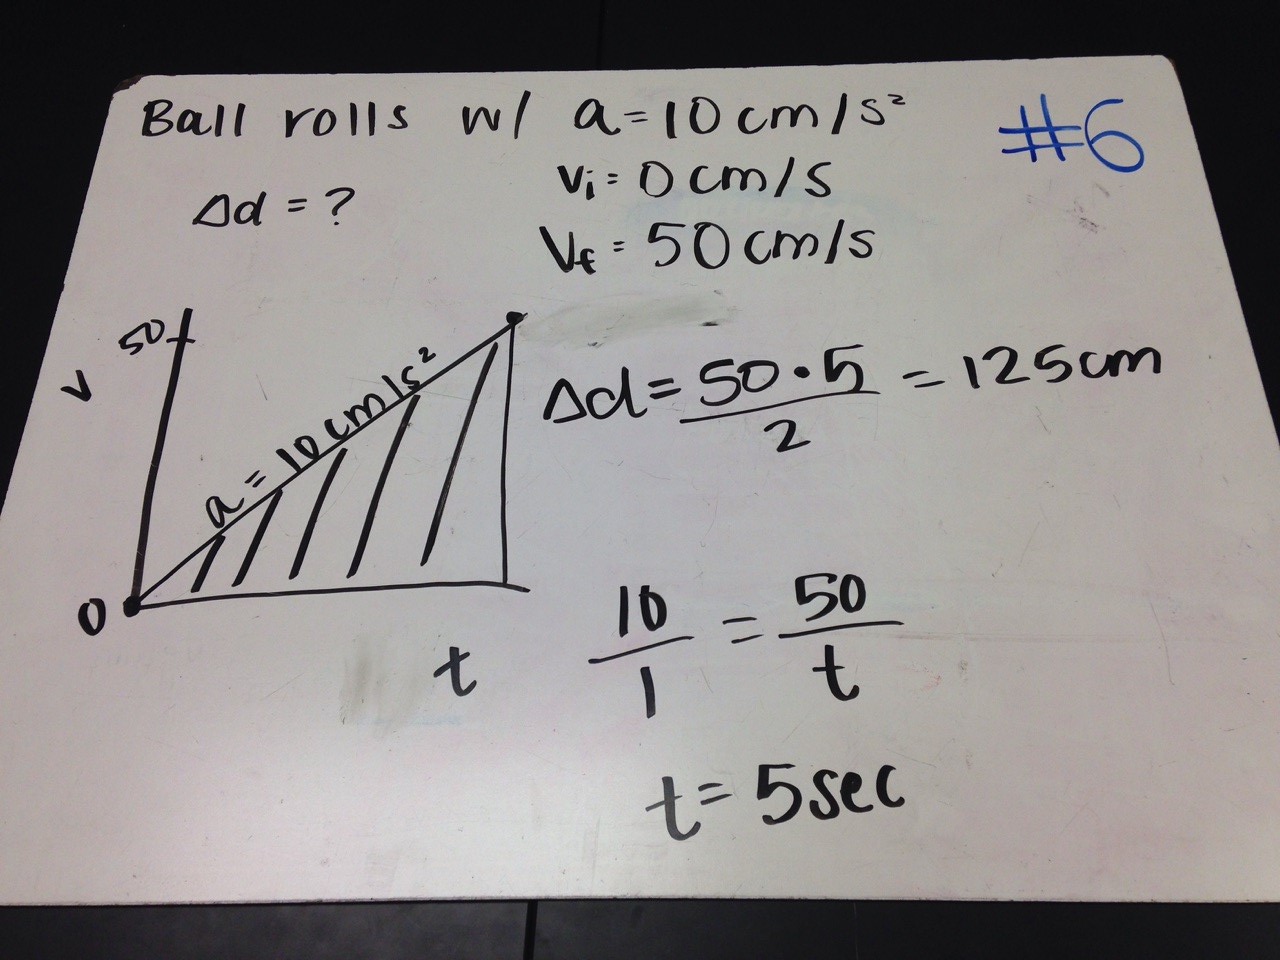 Ball rolls w/ a=10cm/s²
#6
Δd = ?
vi = 0 cm/s
Vf = 50 cm/s
50
v
a = 10 cm/s²
0
t
Δd = 50•5/2 = 125cm
10/1 = 50/t
t = 5sec